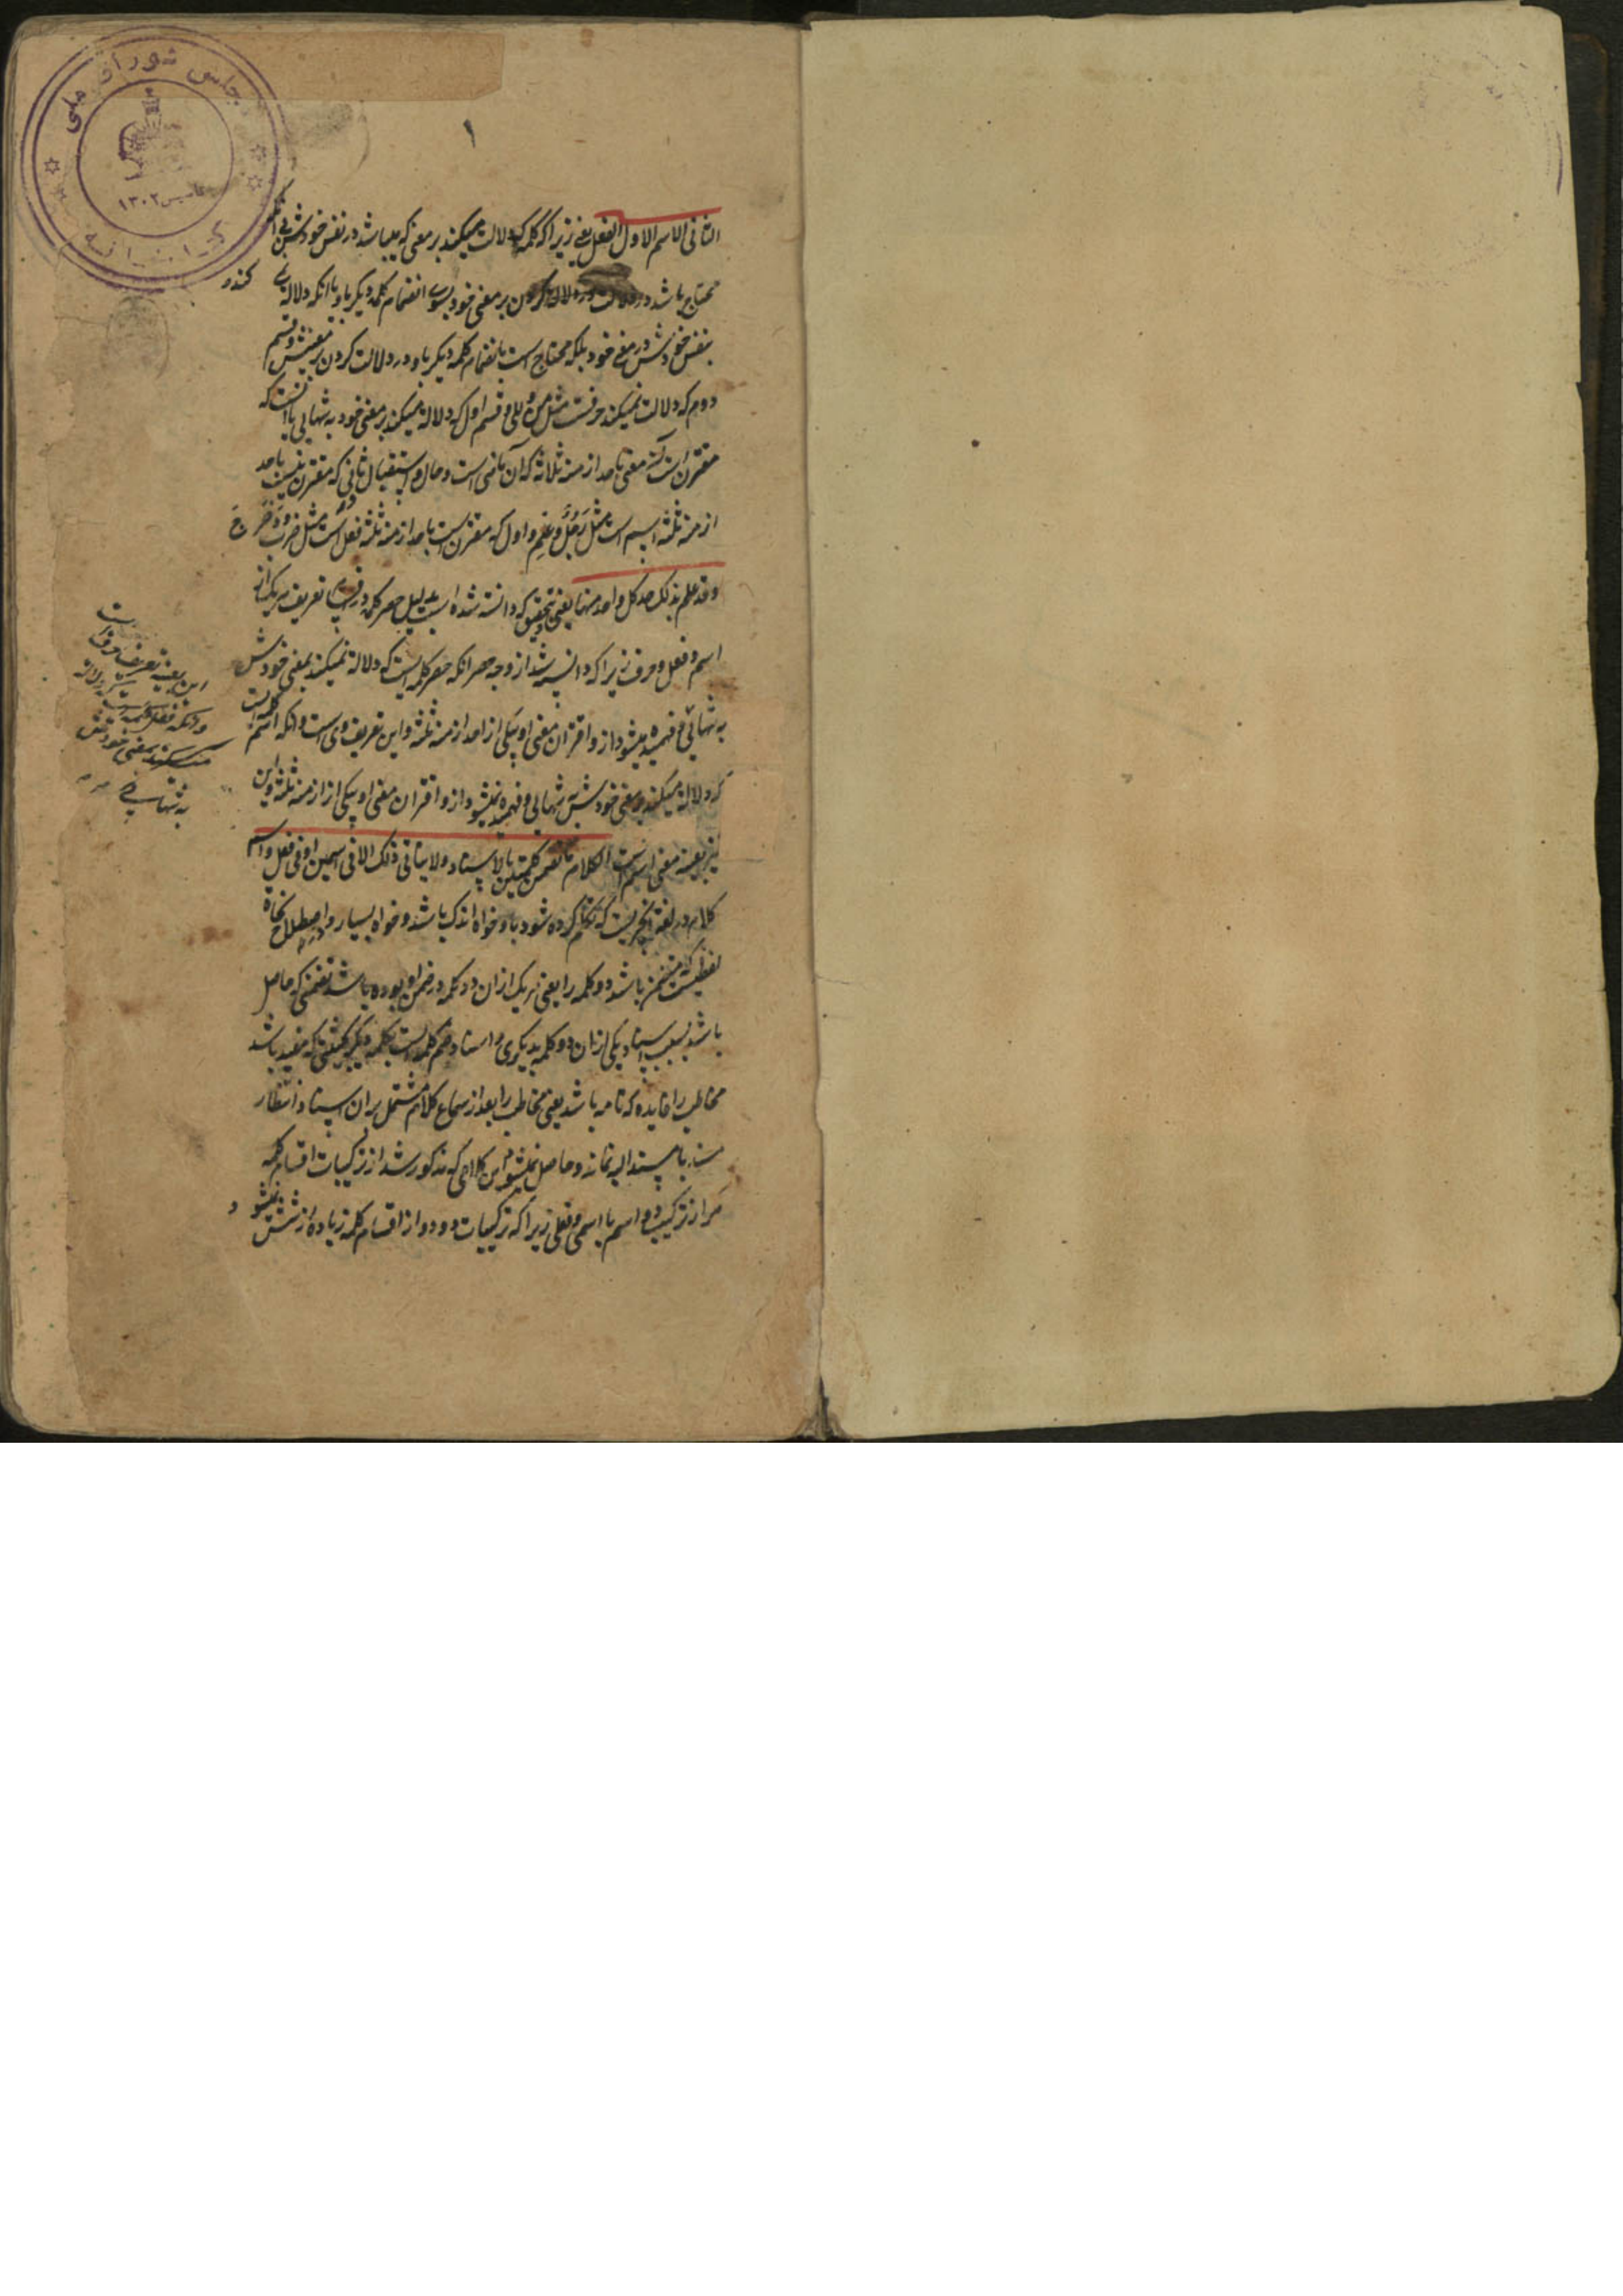 مجلس شورای ملی
تاسیس ۱۳۰۲
کتابخانه
۱
الثانی الاسم الاول الفعل یعنی زیرا که کلمه که دلالت میکند بر معنی که میباشد در نفس خودش بی آنکه
محتاج باشد در دلالت کردن بر معنی خود بسوی انضمام کلمه دیگر باو یا آنکه دلالة نمی کند
بنفس خودش در معنی خود بلکه محتاج است بانضمام کلمه دیگر باو در دلالت کردن بر معنیش و قسم
دوم که دلالت نمیکند حرفست مثل من و الی و قسم اول که دلالة میکند بر معنی خود به تنهایی یا آنست که
مقترن است آن معنی باحد ازمنه ثلاثه که آن ماضی است و حال و استقبال ثانی که مقترن نیست باحد
ازمنه ثلثه اسم است مثل رجل و علم و اول که مقترن است باحد ازمنه ثلثه فعل است مثل ضرب و دحرج
و قد علم بذلک حد کل واحد منها یعنی بتحقیق که دانسته شده است بدلیل حصر کلمه در اقسام تعریف هر یک از
اسم و فعل و حرف زیرا که دانسته شد از وجه حصر آنکه حرف کلمه ایست که دلالة نمیکند بمعنی خودش
به تنهائی و فهمیده میشود ازو اقتران معنی او بیکی از احد ازمنه ثلثه و این تعریف وی است و آنکه اسم کلمه ایست
که دلالة میکند بر معنی خودش به تنهایی و فهمیده نمیشود ازو اقتران معنی او بیکی از ازمنه ثلثه و این
نیز بعینه معنی اسم است الکلام ما تضمن کلمتین بالاسناد و لا یتأتی ذلک الا فی اسمین او فی فعل و اسم
کلام در لغة چیزیست که تکلم کرده شود باو خواه اندک باشد و خواه بسیار و در اصطلاح نحاة
لفظیست که متضمن باشد دو کلمه را یعنی هر یک از ان دو کلمه در ضمن او بوده باشد تضمنی که حاصل
باشد بسبب اسناد یکی از ان دو کلمه بدیگری و اسناد ضم کلمه ایست بکلمه دیگر بحیثیتی که مفید باشد
مخاطب را فایده که تامه باشد یعنی مخاطب را بعد از سماع کلام مشتمل بران اسناد انتظار
مسند یا مسند الیه نماند و حاصل نمیشود این کلامی که مذکور شد از ترکیبات اقسام کلمه
مگر از ترکیب دو اسم یا اسمی و فعلی زیرا که ترکیبات دو دو از اقسام کلمه زیاده از شش نمیشود
این بعینه تعریف حرف است
و آنکه فعل کلمه ایست که دلالة
میکند بمعنی خودش
به تنهایی